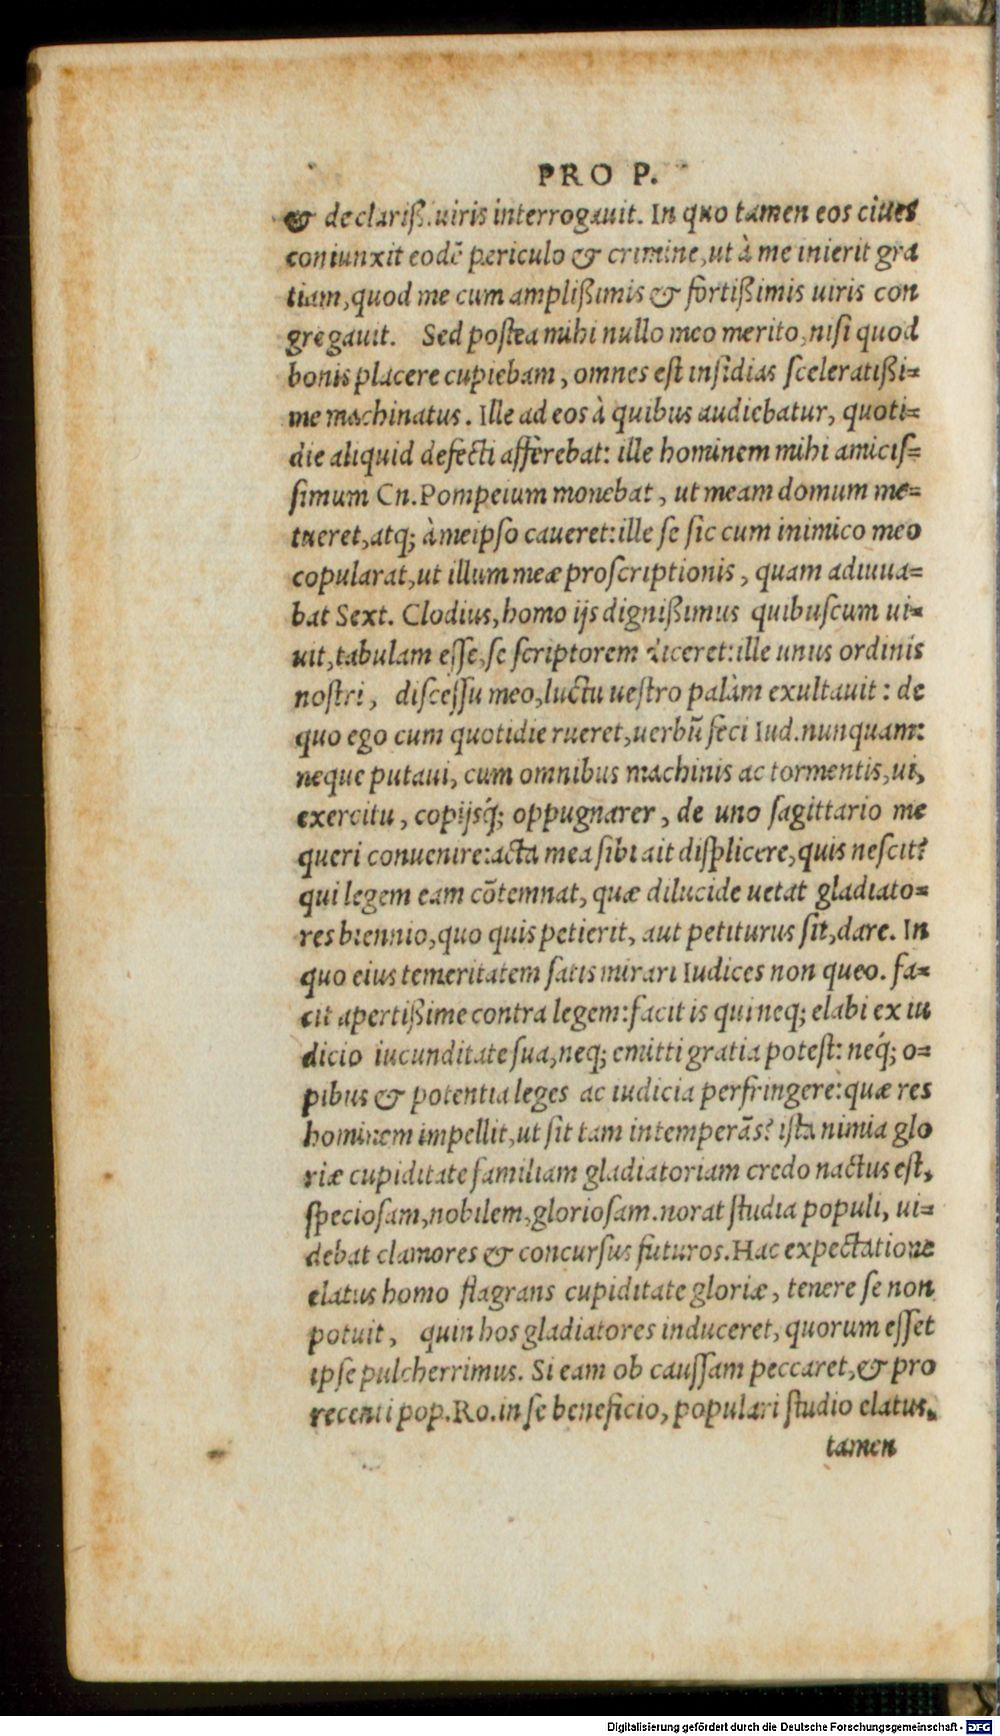 PRO P.
& de clariß. uiris interrogauit. In quo tamen eos ciues
coniunxit eodē periculo & crimine, ut à me inierit gra
tiam, quod me cum amplißimis & fortißimis uiris con
gregauit. Sed postea mihi nullo meo merito, nisi quod
bonis placere cupiebam, omnes est insidias sceleratißi=
me machinatus. Ille ad eos à quibus audiebatur, quoti=
die aliquid defecti afferebat: ille hominem mihi amicis=
simum Cn. Pompeium monebat, ut meam domum me=
tueret, atq; à meipso caueret: ille se sic cum inimico meo
copularat, ut illum meæ proscriptionis, quam adiuua=
bat Sext. Clodius, homo ijs dignißimus quibuscum ui=
uit, tabulam esse, se scriptorem diceret: ille unus ordinis
nostri, discessu meo, luctu uestro palàm exultauit: de
quo ego cum quotidie rueret, uerbū feci Iud. nunquam:
neque putaui, cum omnibus machinis ac tormentis, ui,
exercitu, copijsq́; oppugnarer, de uno sagittario me
queri conuenire: acta mea sibi ait displicere, quis nescit?
qui legem eam cōtemnat, quæ dilucide uetat gladiato=
res biennio, quo quis petierit, aut petiturus sit, dare. In
quo eius temeritatem satis mirari Iudices non queo. fa=
cit apertißime contra legem: facit is qui neq; elabi ex iu
dicio iucunditate sua, neq; emitti gratia potest: neq́; o=
pibus & potentia leges ac iudicia perfringere: quæ res
hominem impellit, ut sit tam intemperās? ista nimia glo
riæ cupiditate familiam gladiatoriam credo nactus est,
speciosam, nobilem, gloriosam. norat studia populi, ui=
debat clamores & concursus futuros. Hac expectatione
elatus homo flagrans cupiditate gloriæ, tenere se non
potuit, quin hos gladiatores induceret, quorum esset
ipse pulcherrimus. Si eam ob caussam peccaret, & pro
recenti pop. Ro. in se beneficio, populari studio elatus,
tamen
Digitalisierung gefördert durch die Deutsche Forschungsgemeinschaft - DFG